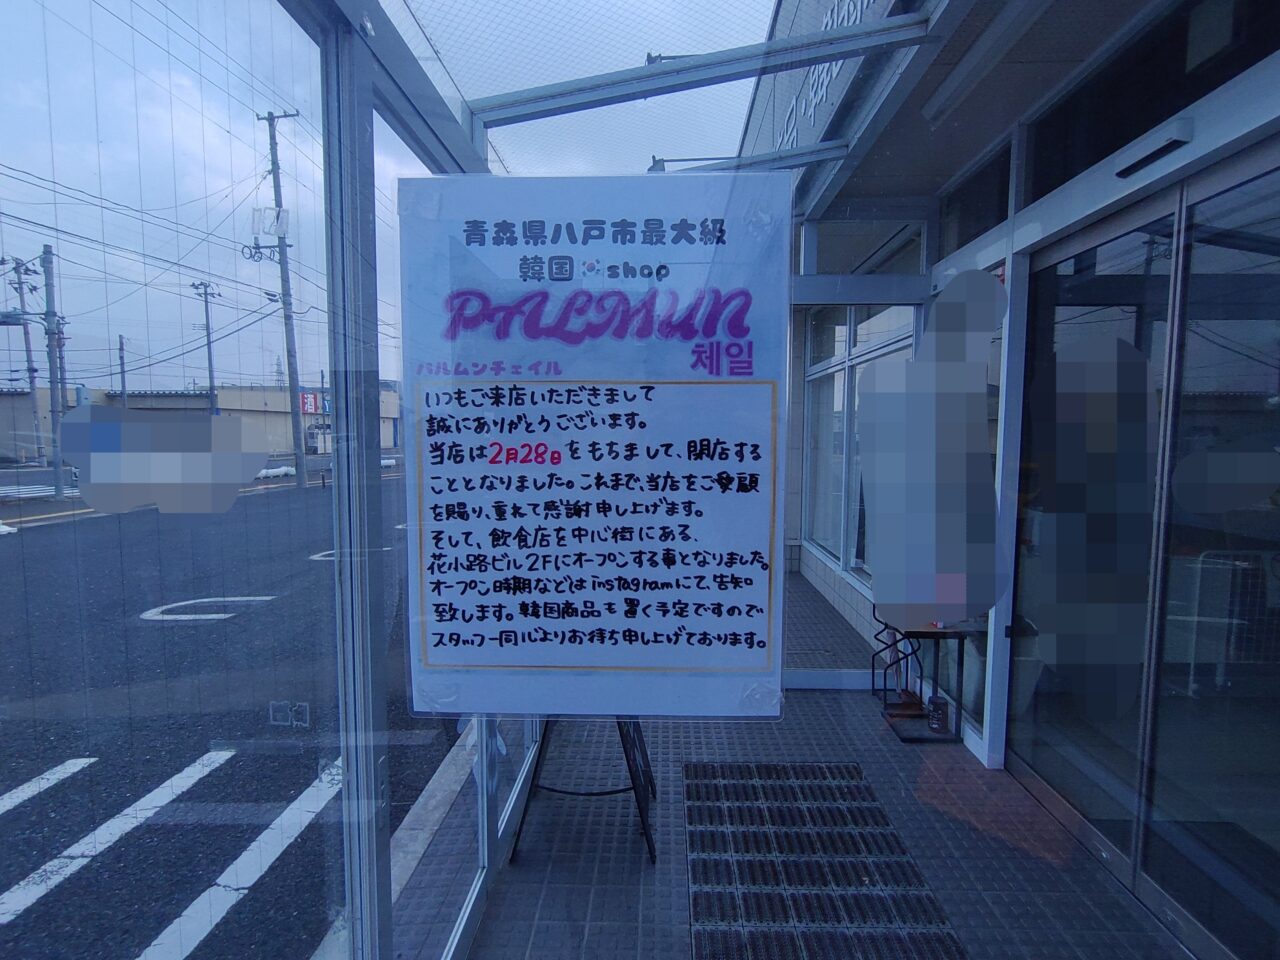 青森県八戸市最大級
韓国 shop
PALMUN
체일
パルムンチェイル
いつもご来店いただきまして
誠にありがとうございます。
当店は2月28日をもちまして、閉店する
こととなりました。これまで、当店をご愛顧
を賜り、重ねて感謝申し上げます。
そして、飲食店を中心街にある、
花小路ビル2Fにオープンする事となりました。
オープン時期などはinstagramにて、告知
致します。韓国商品も置く予定ですので
スタッフ一同心よりお待ち申し上げております。
酒